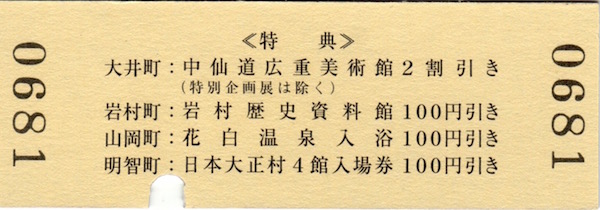 0681
《特典》
大井町：中仙道広重美術館2割引き
（特別企画展は除く）
岩村町：岩村歴史資料館100円引き
山岡町：花白温泉入浴100円引き
明智町：日本大正村4館入場券100円引き
0681